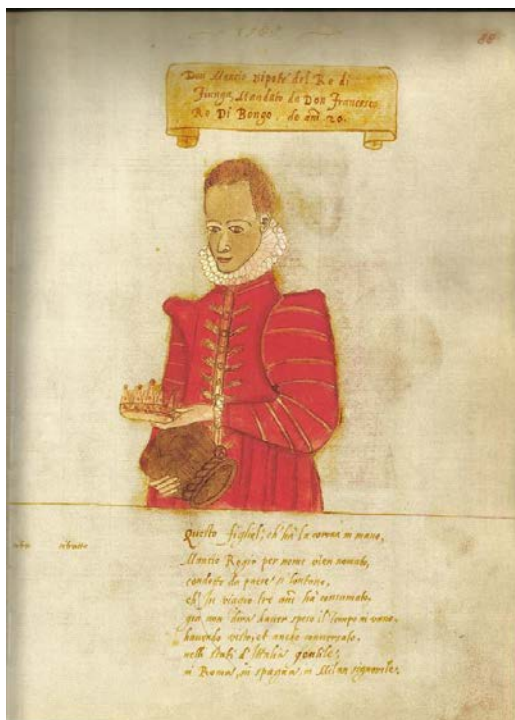 88
Don Mancio nipote del Re di
Fiunga, Mandato da Don Francesco
Re Di Bongo, de anni 20.
Questo figliol, ch' hà la corona in mano,
Mancio Regio per nome vien nomato,
condotto da paese si lontano,
ch' in viaggio tre anni hà consumato.
già non deve haver speso il tempo in vano,
havendo visto, et anche conversato,
nelli stati d' Italia gentile,
in Roma, in spagna, in Milan signorile.